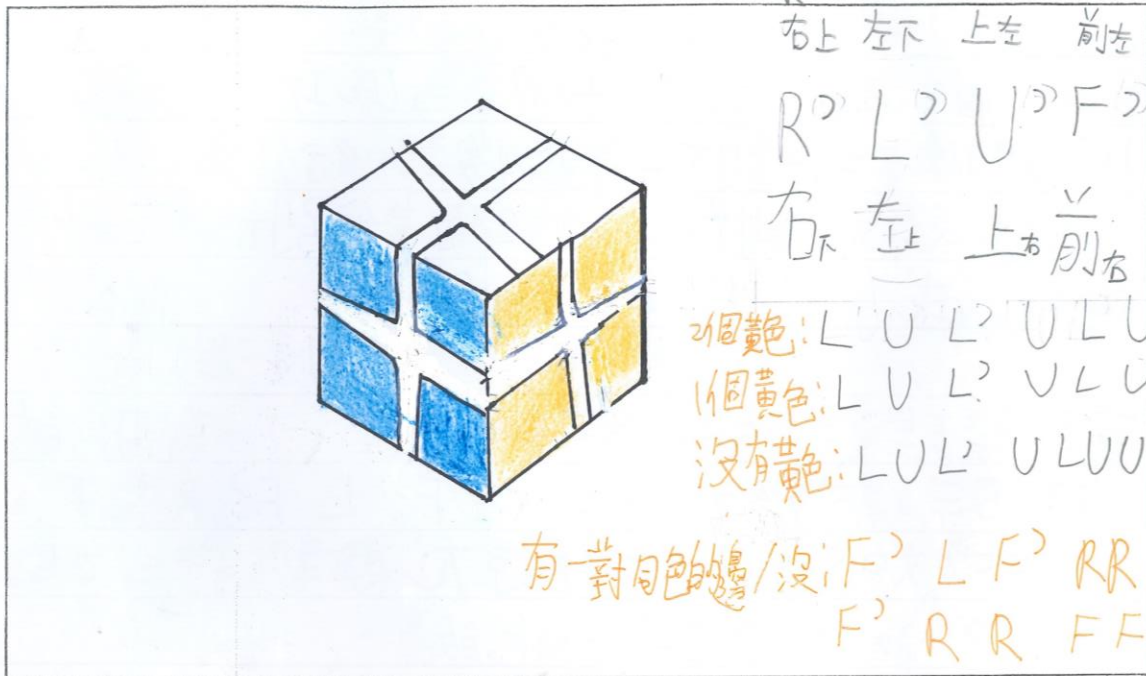 右上 左下 上左 前左
R’ L’ U’ F’
右下 左上 上右 前右
2個黃色: L U L’ U L U
1個黃色: L U L’ U L U
沒有黃色: L U L’ U L U U
有一對同色的邊/沒: F’ L F’ R R
F’ R R F F